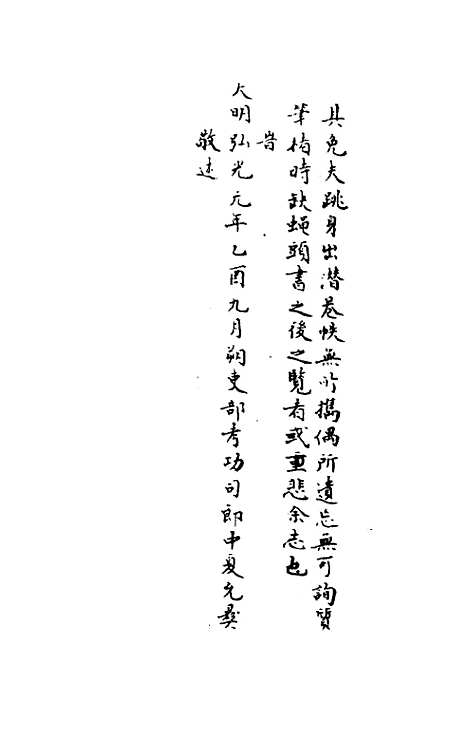 具免夫跳身出潜卷帙無所攜偶所遺忘無可詢質
筆楮時缺蝇頭書之後之覧者或重悲余志也

旹
大明弘光元年乙酉九月朔吏部考功司郎中夏允彝
敬述